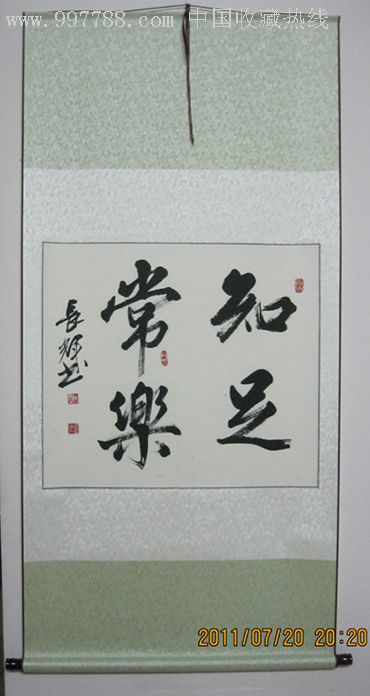 www.997788.com 中国收藏热线
知足
常樂
長輝书
2011/07/20 20:20